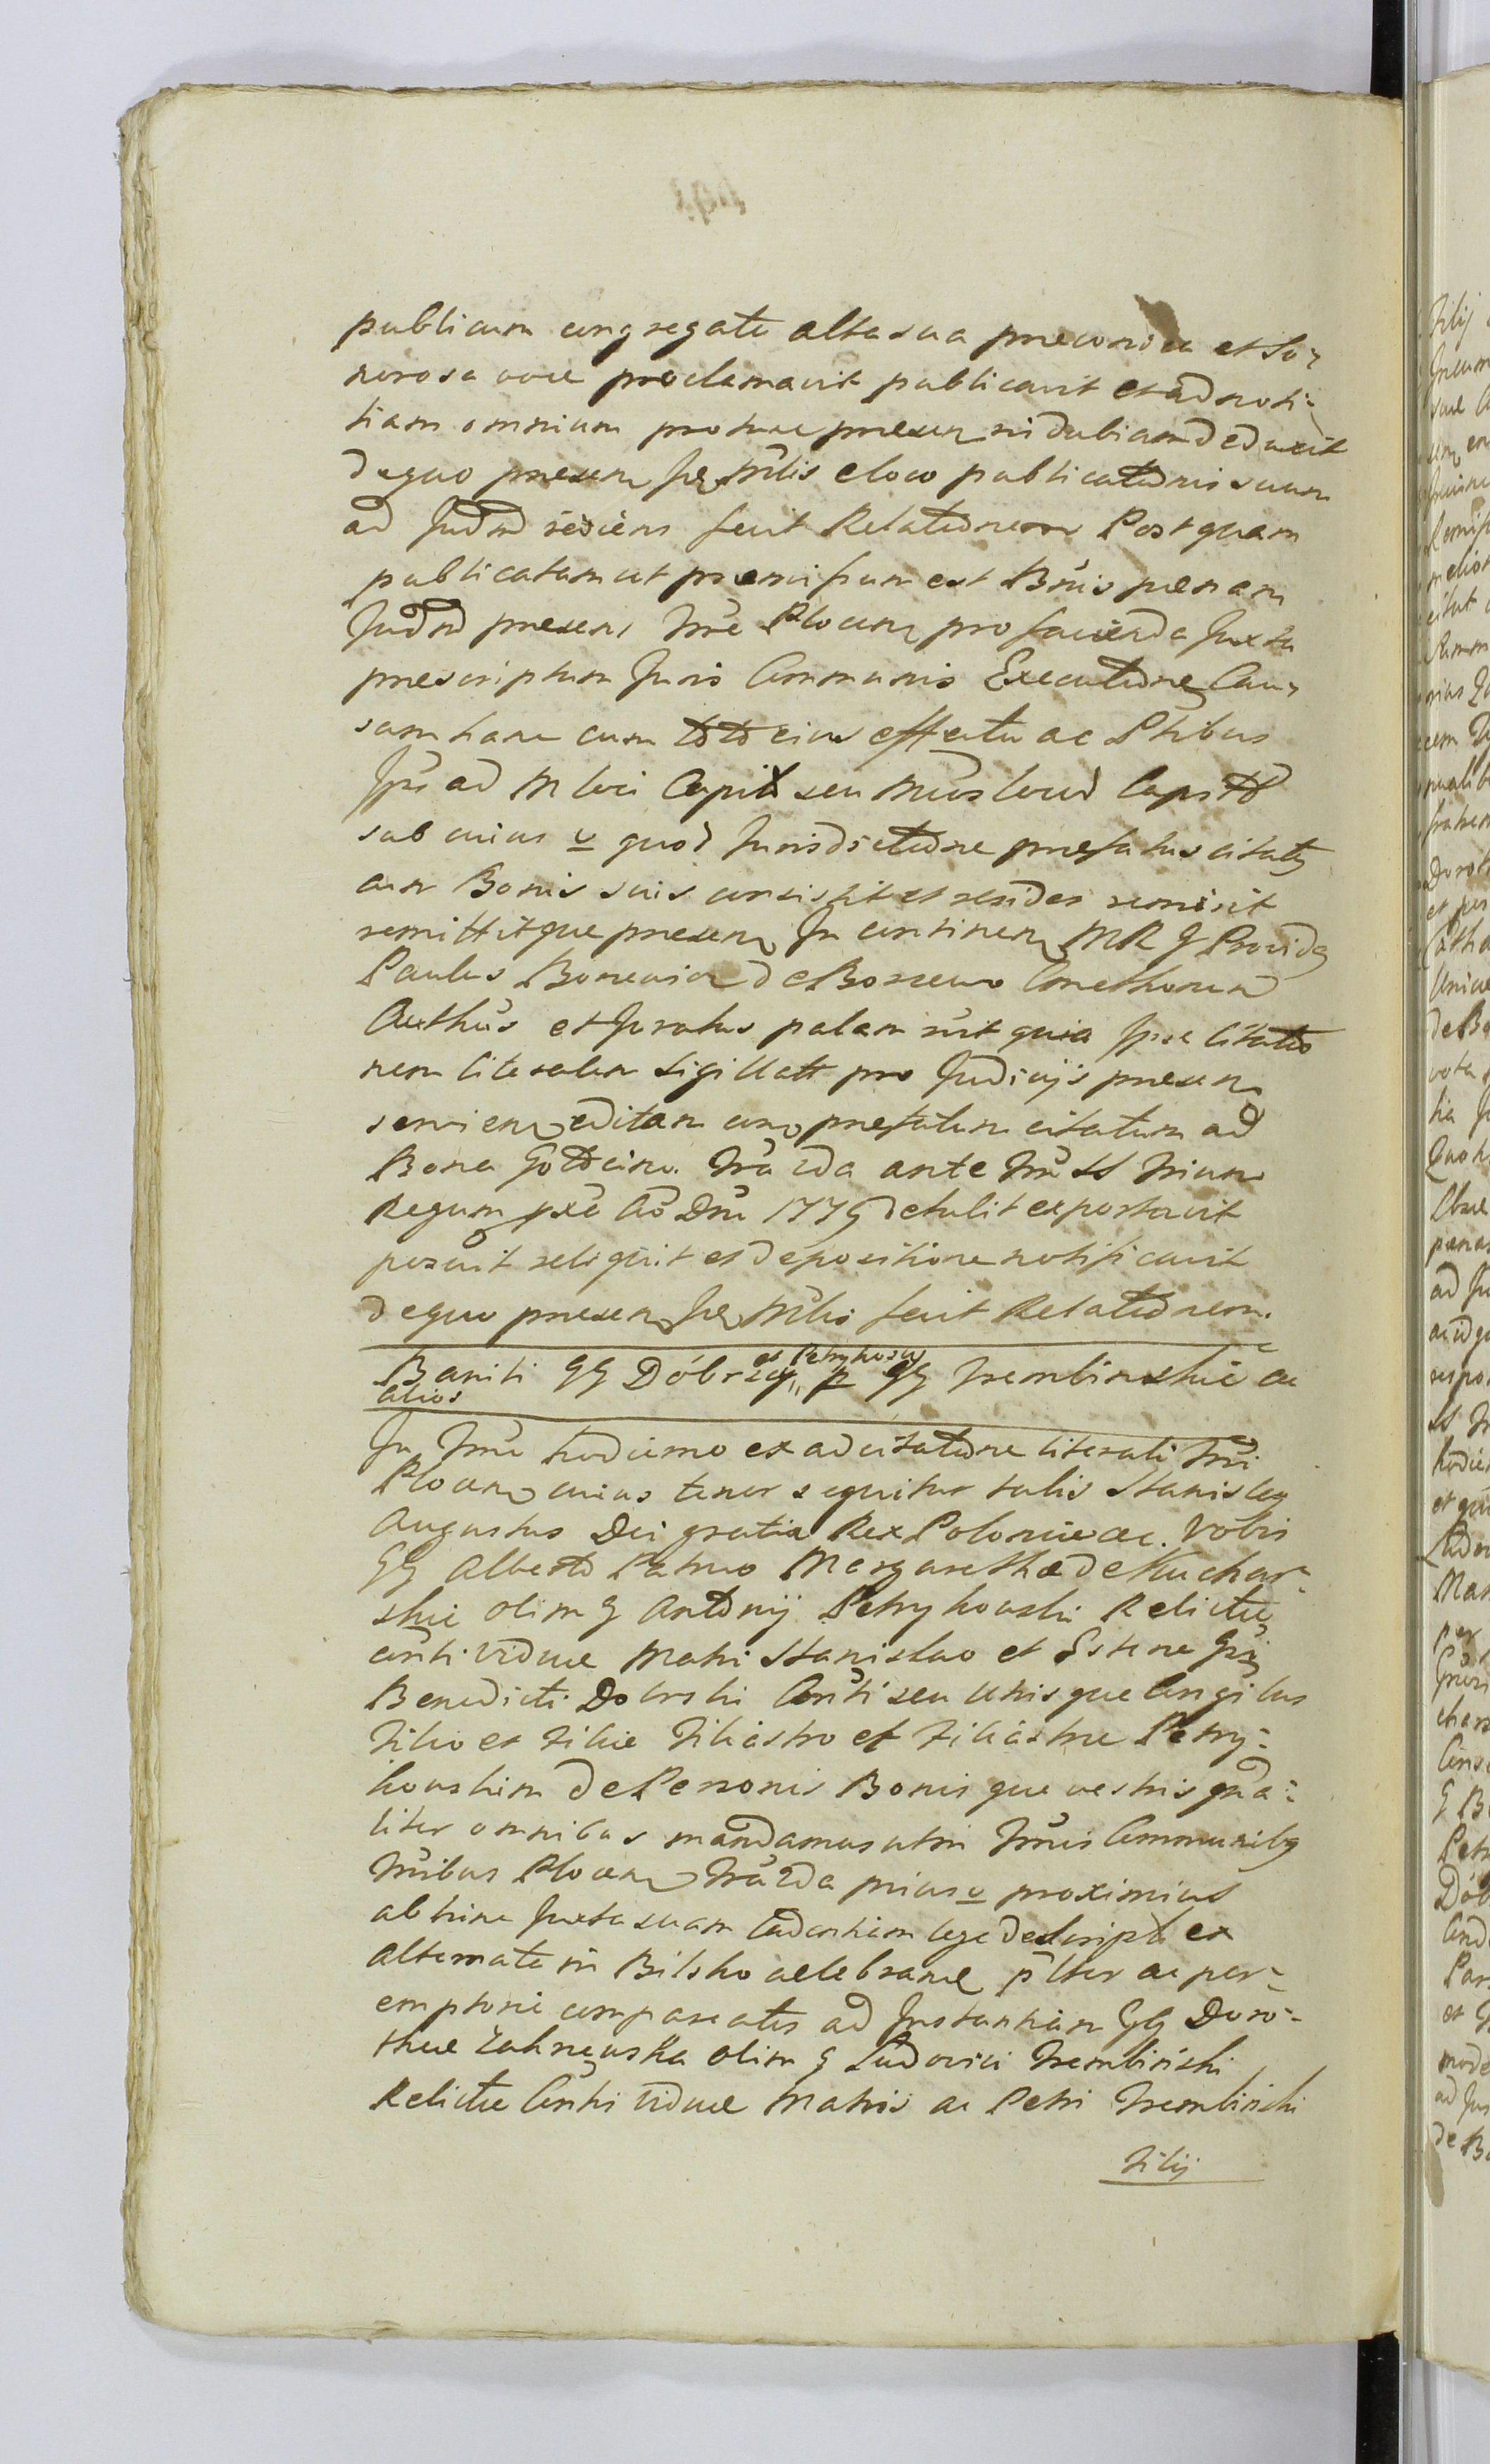 publicum congregate alta sua preconica et So¬
norosa voce proclamavit publicavit et ad noti¬
tiam omnium pro tunc presen indubiam deduxit
de quo presen Je Mlis eloco publicatonis suam
ad Judm rediens fecit Relatonem Postquam
publicatam ut premissum est Bnis penam
Judm presens Tme Plocen pro facienda Juxta
prescriptum Juris Communis Executone Cau¬
sam hanc cum toto eius effectu ac Ptibus
Jpi ad M loci Capit seu
sub cuius v quod Jurisdictone prefatus citatq
cum Bonis suis consistit et resides remisit
remittitque presen In continen MR G Provida
Paulus de Borzewo
Authus et Juratus palam rnt quia Jpse Citatio
nem literalem Sigillatt pro Judicijs presen
servien editam con prefatum citatum ad
Bona ante SS Trium
Regum pxe Ao Dni 1775 detulit exportavit
posuit reliquit et depositione notificavit
de quo presen Je Mlis fecit Relatonem.
Baniti GG Dóbrscy et Petrykoscy p GG Trembinskie ac
alios
In Tme hodierno ex ad citatone literali Tmi
Plocen cuius tenor sequitur talis Stanislaq
Augustus Dei gratia Rex Polonie ac. Vobis
GG Alberto Patruo Margarethæ de Kuchar¬
skie olim G Antonij Petrykowski Relictæ
conti viduæ Matri Stanislao et
Benedicti Dobrski Conti seu Utrisque Congibus
Filio et Filie Filiastro et Filiastræ Petry¬
kowskim de Personis Bonisque vestris gna¬
liter omnibus mandamus utin Tmis Communibq
Tmibus Plocen pius v proximius
ab hinc Juxta suam Cadentiam lege descript ex
alternata in Bilsko celebrand plter ac per¬
emptorie compareatis ad Instantiam GG Doro¬
theæ olim G Ludovici Trembinski
Relictæ Conti viduæ Matris ac Petri Trembinski
Filij